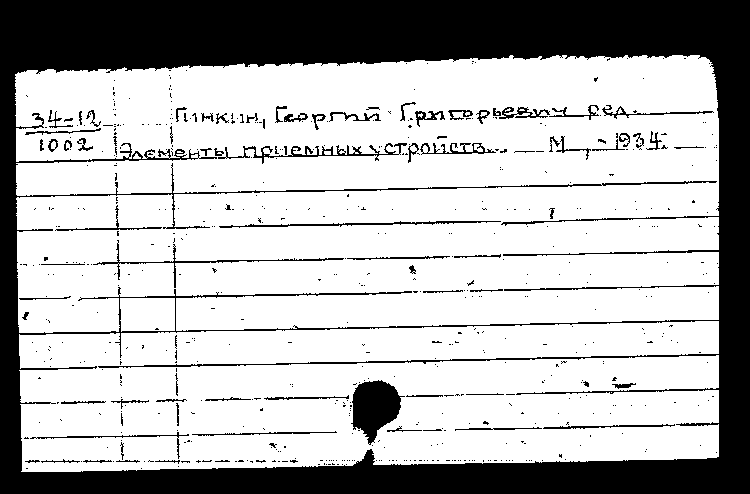 34-12
1002
Гинкин, Георгий Григорьевич ред.
Элементы приемных устройств... М., - 1934.